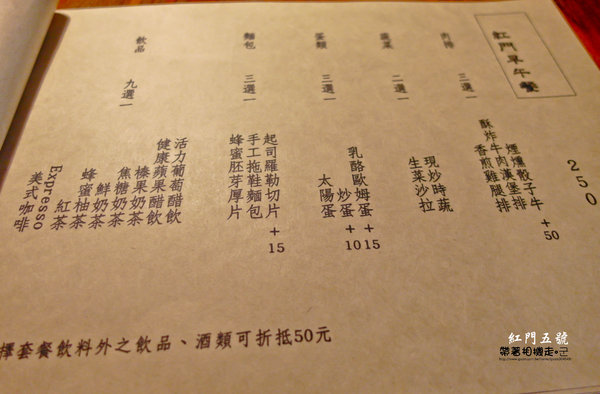 紅門早午餐
250
肉陽
三選一
煙燻骰子牛+50
酥炸牛肉漢堡排
香煎雞腿排
蔬菜
二選一
現炒時蔬
生菜沙拉
蛋類
三選一
乳酪歐姆蛋+15
炒蛋+10
太陽蛋
麵包
三選一
起司羅勒切片+15
手工拖鞋麵包
蜂蜜胚芽厚片
飲品
九選一
活力葡萄醋飲
健康蘋果醋飲
榛果奶茶
焦糖奶茶
鮮奶茶
蜂蜜柚茶
紅茶
Expresso
美式咖啡
擇套餐飲料外之飲品、酒類可折抵50元
紅門五號
帶著相機走·